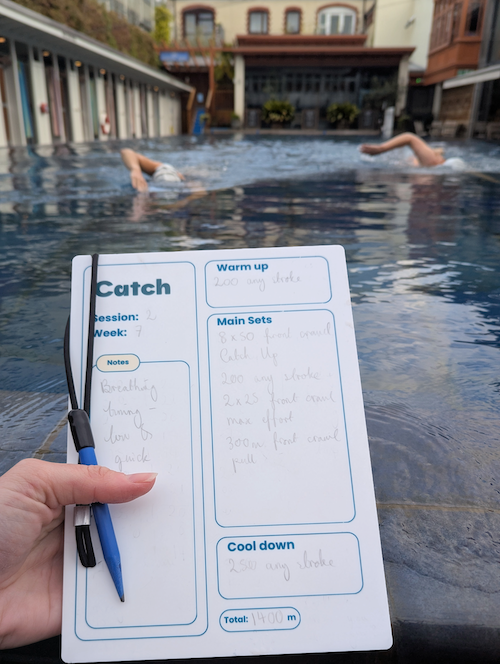 Catch
Session: 2
Week: 7
Notes
Breathing
timing -
low &
quick
Warm up
200 any stroke
Main Sets
8x50 front crawl
Catch Up
200 any stroke
2x25 front crawl
max effort
300m front crawl
pull
Cool down
250 any stroke
Total: 1400 m